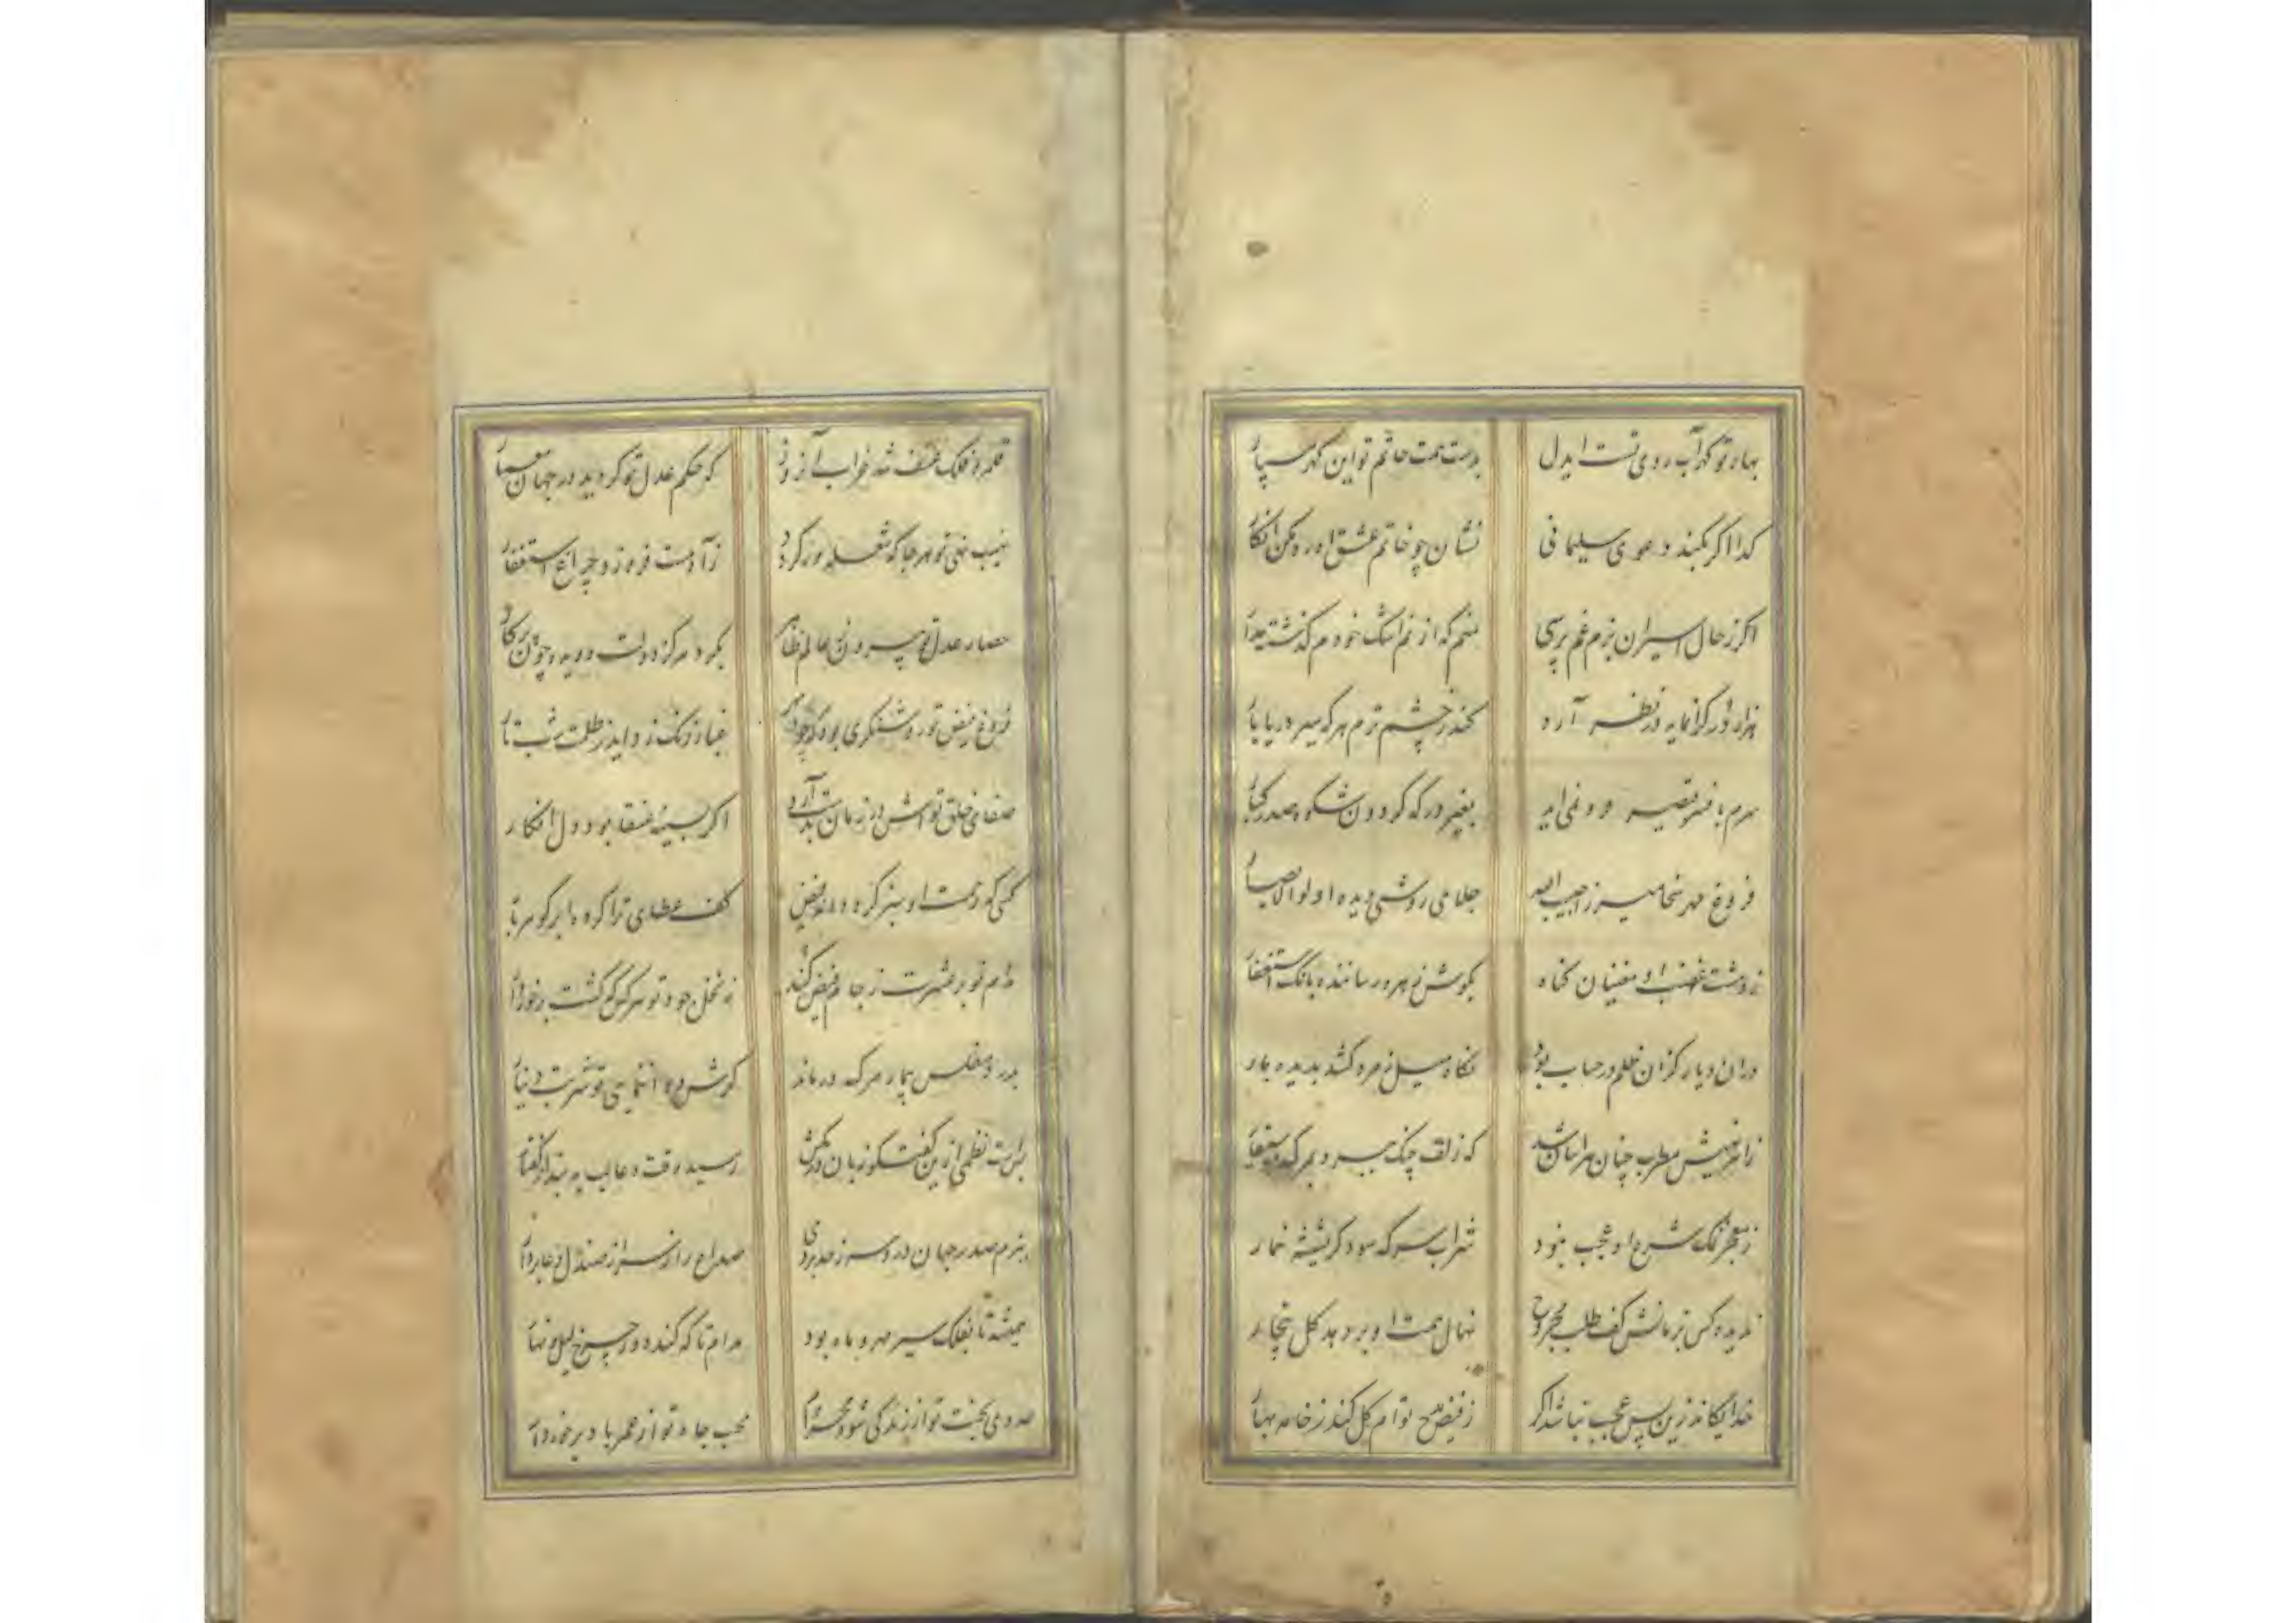 بهاء تو گهر آب روی تست ایدل بدست همت حاتم تو این گهر سپار
کدا اگر بکند دعوی سلیمانی نشان چو خاتم عشق او رد مکن انکار
اگر ز حال اسیران بزم غم پرسی منم که از نم اشک خودم گذشته مدار
هزار در گرانمایه در نظر آرد کند ز چشم ترم هر که سیر دریا بار
سرم با فسر قیصر فرو نمی اید بغیر درگه گردون شکوه صدر کبار
فروغ مهر سخا میرزا حبیب الله جلای روشنی دیده اولوالابصار
ز دشت غضب او مغنیان گناه بگوش زهره رسانند بانک استغفار
دران دیار گران ظلم در حساب بود نگاه میل زمرد کشد بدیده مار
مطرب چنان هراسان شد که زلف چنک ببرد بمرک
شرع او عجب نبود شراب سرکه شود گر بشیشه خمار
ندیده کس ز زمانش کف طلب مجروح نهال همت او بر دهد گل بیخار
خدایگانا زین پس عجب نباشد اگر ز فیض مدح توام گل کند ز خامه بهار
قلمرو فلک شد خراب آن روز که حکم عدل تو گردید در جهان معمار
نهیب نهی تو هر جا که شعله ور گردد ز آه مست فروزد چراغ استغفار
حصار عدل تو بیرون عالم ظاهر بگرد مرکز دولت دویده چون پرکار
فروغ فیض تو روشنگری بود که چو مهر غبار زنک زداید ز ظلمت شب تار
صفای خلق تواش در زمان بدست آرد اگر بسینه عنقا بود دل افکار
کسی که همت او سبز کرده فیض کف عطای ترا کرده ابر گوهربار
مدام تو به عشرت ز جام فیض کشد ز نخل جود تو هر کس که گشت برخوردار
بدرد مفلس بیمار هر که درماند گوارش دهد انتمای تو شربت دینار
بس است نظمی ازین گفتگو زبان درکش رسید وقت دعا لب ببند از گفتار
ببزم صدر جهان درد سر ز حد بردی صداع را ز سر از صندل دعا بردار
همیشه تا بفلک سیر مهر و ماه بود مدام تا که کند دور چرخ لیل و نهار
عدوی بخت تو از زندگی شود محترز محب جاه تو از عمر باد برخوردار